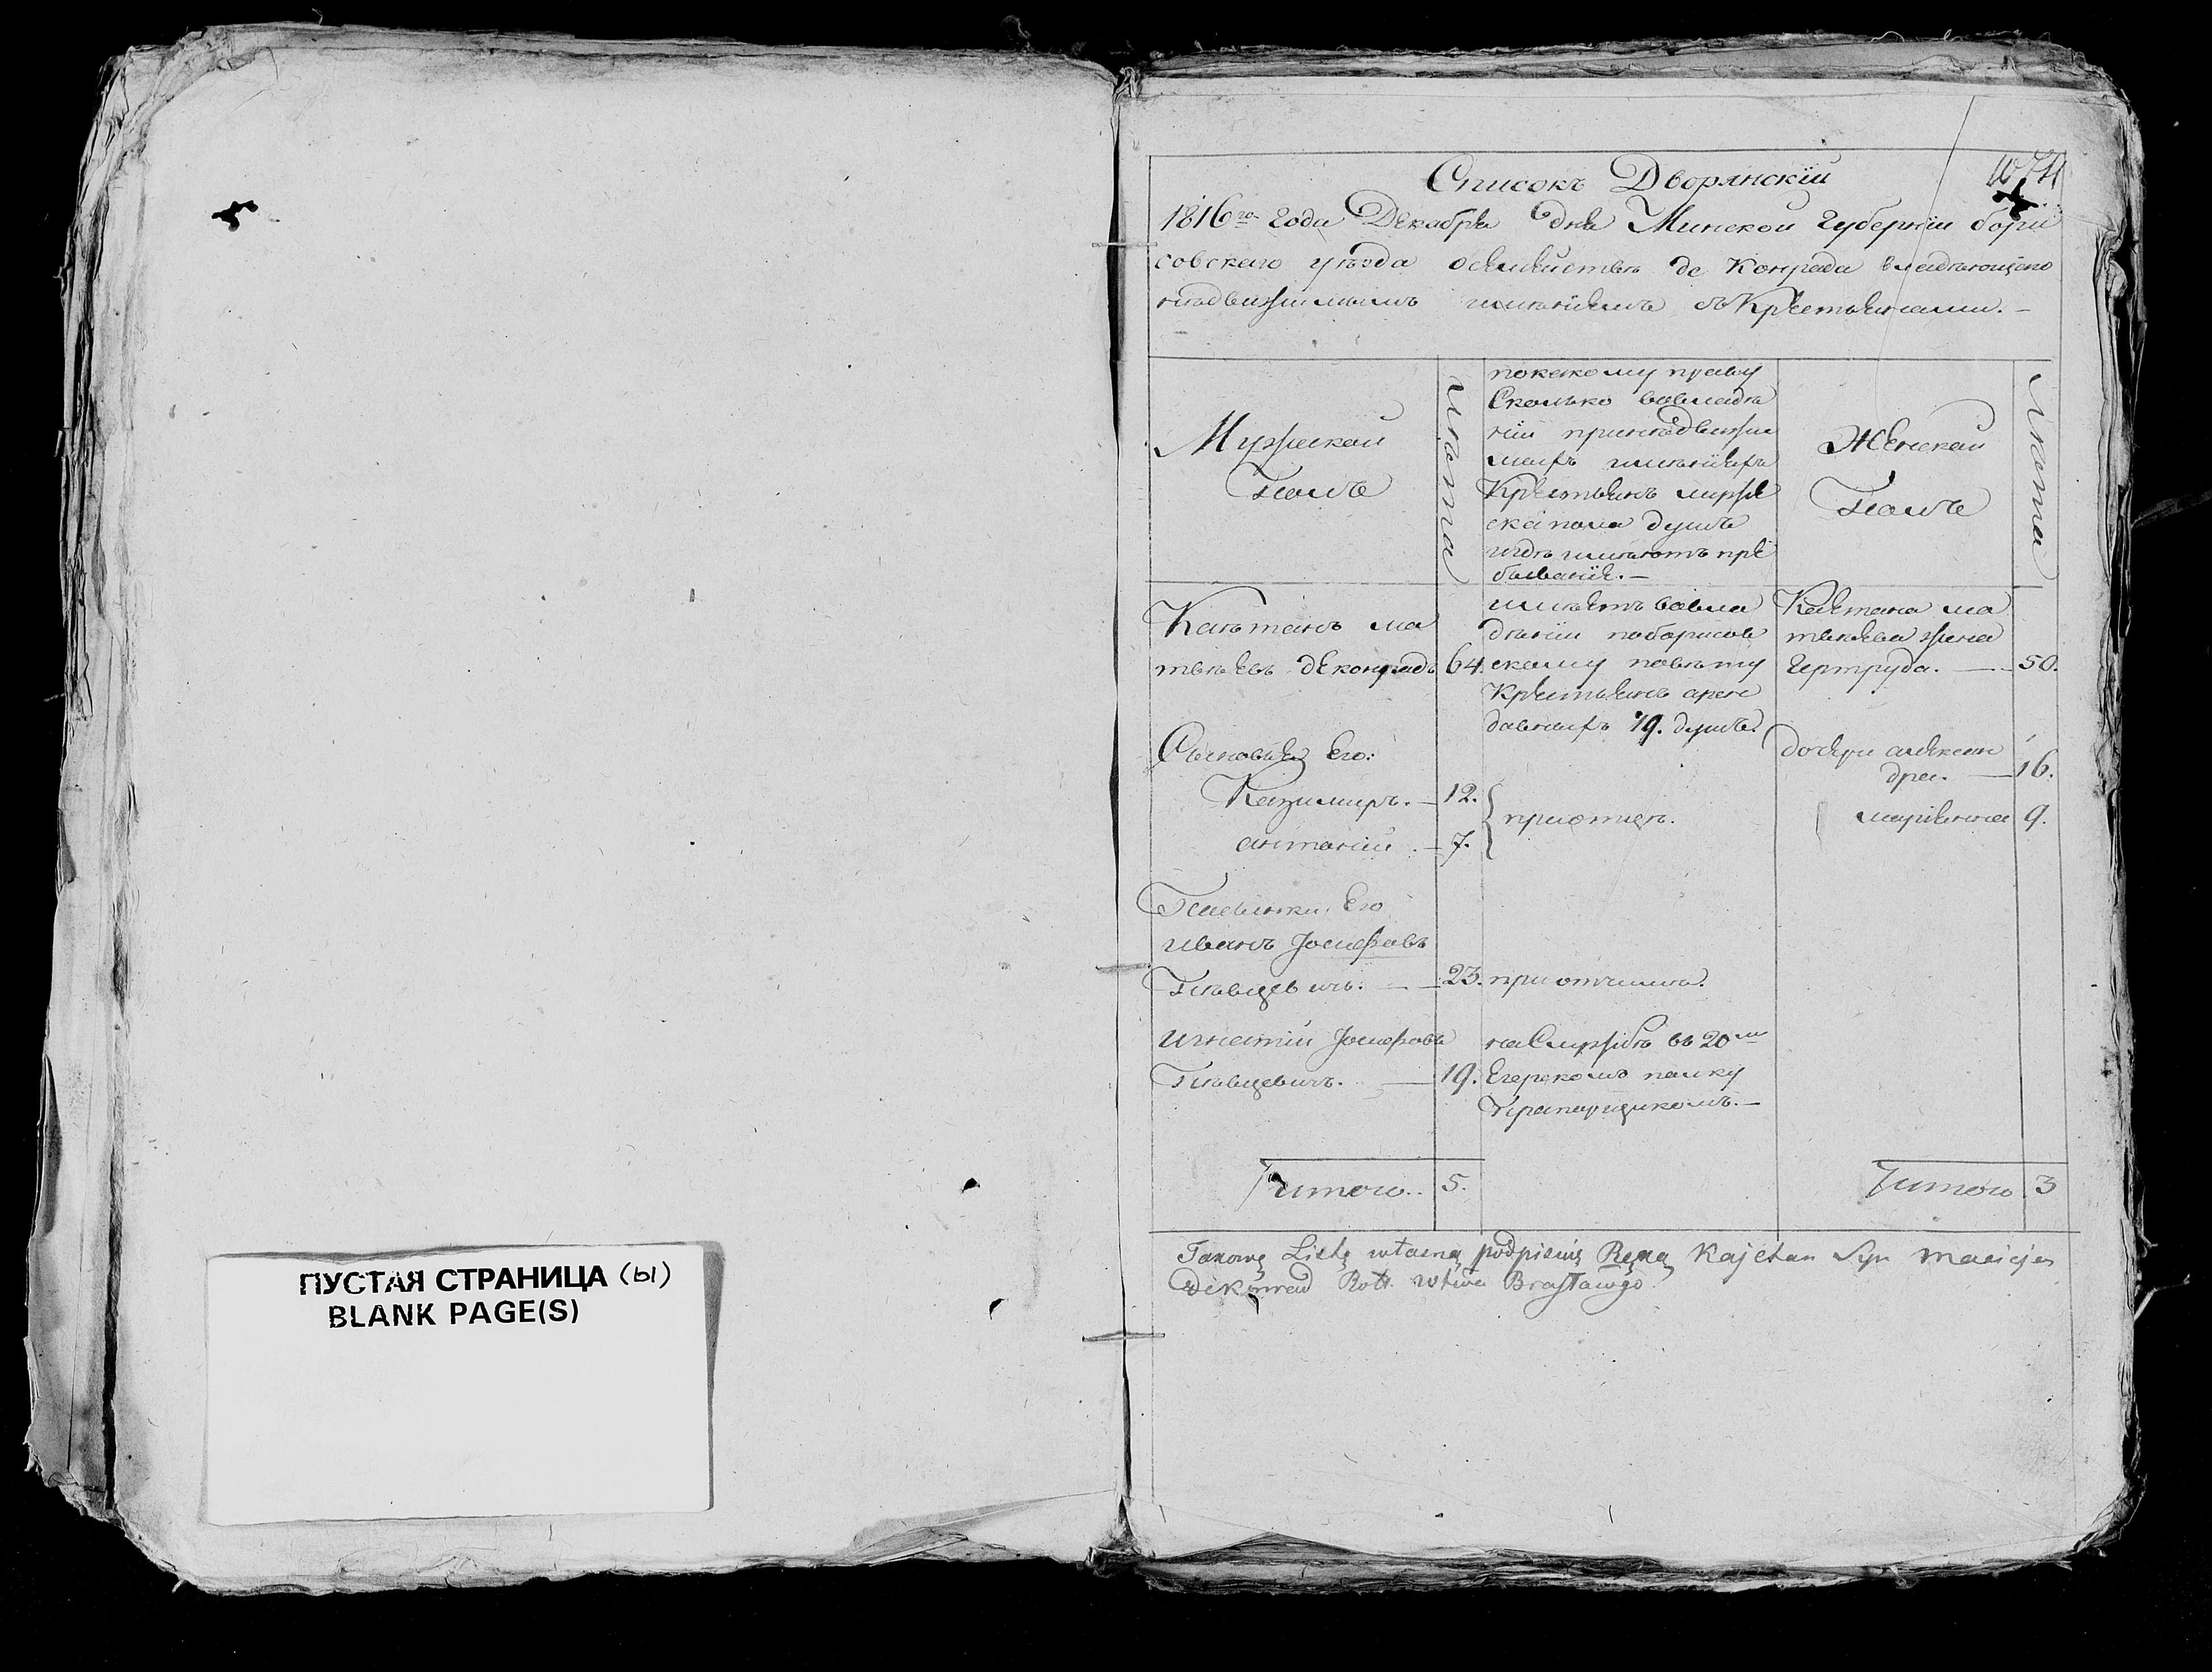 ПУСТАЯ СТРАНИЦА (ы)
BLANK PAGE(S)
Списокъ Дворянскій
1816го года Декабря 6 дня Минской губерніи бори
совскаго уѣзда осемействѣ де Конрада владѣющего
недвижимымъ имѣніемъ съ Крестьянами.
Мужеской
Полъ
Лѣта
покакому праву
Сколько вовладѣ
ніи принедвижи
мыхъ имѣніяхъ
Крестьянъ муже
ска пола душъ
игдѣ имѣютъ пре
бываніе.
Женской
Полъ
Лѣта
Каѣтанъ ма
тѣѣевъ деконрадъ 64.
имѣетъ вовла
дѣніи поборисов
скому повѣту
Крестьянъ арен
давныхъ 19. душъ.
Каетана ма
тѣяева жена
Гертруда. 50.
Сыновья Его:
Казимиръ. 12.
антоній. 7.
приотцѣ.
дочери алексан
дра. 16.
маріанна 9.
Пасынки Его
иванъ Jосифовъ
Пѣвцевичъ. 23. при отчимѣ.
игнатій Jосифовъ
Пѣвцевичъ. 19.
наСлужбѣ въ 20м
Егерскомъ полку
Прапорщикомъ.
итого.. 5.
итого. 3
Takową Listę własną podpisuię Ręką Kajetan Syn Macieja
Dekonrad Rott. wtwa Bracławgo